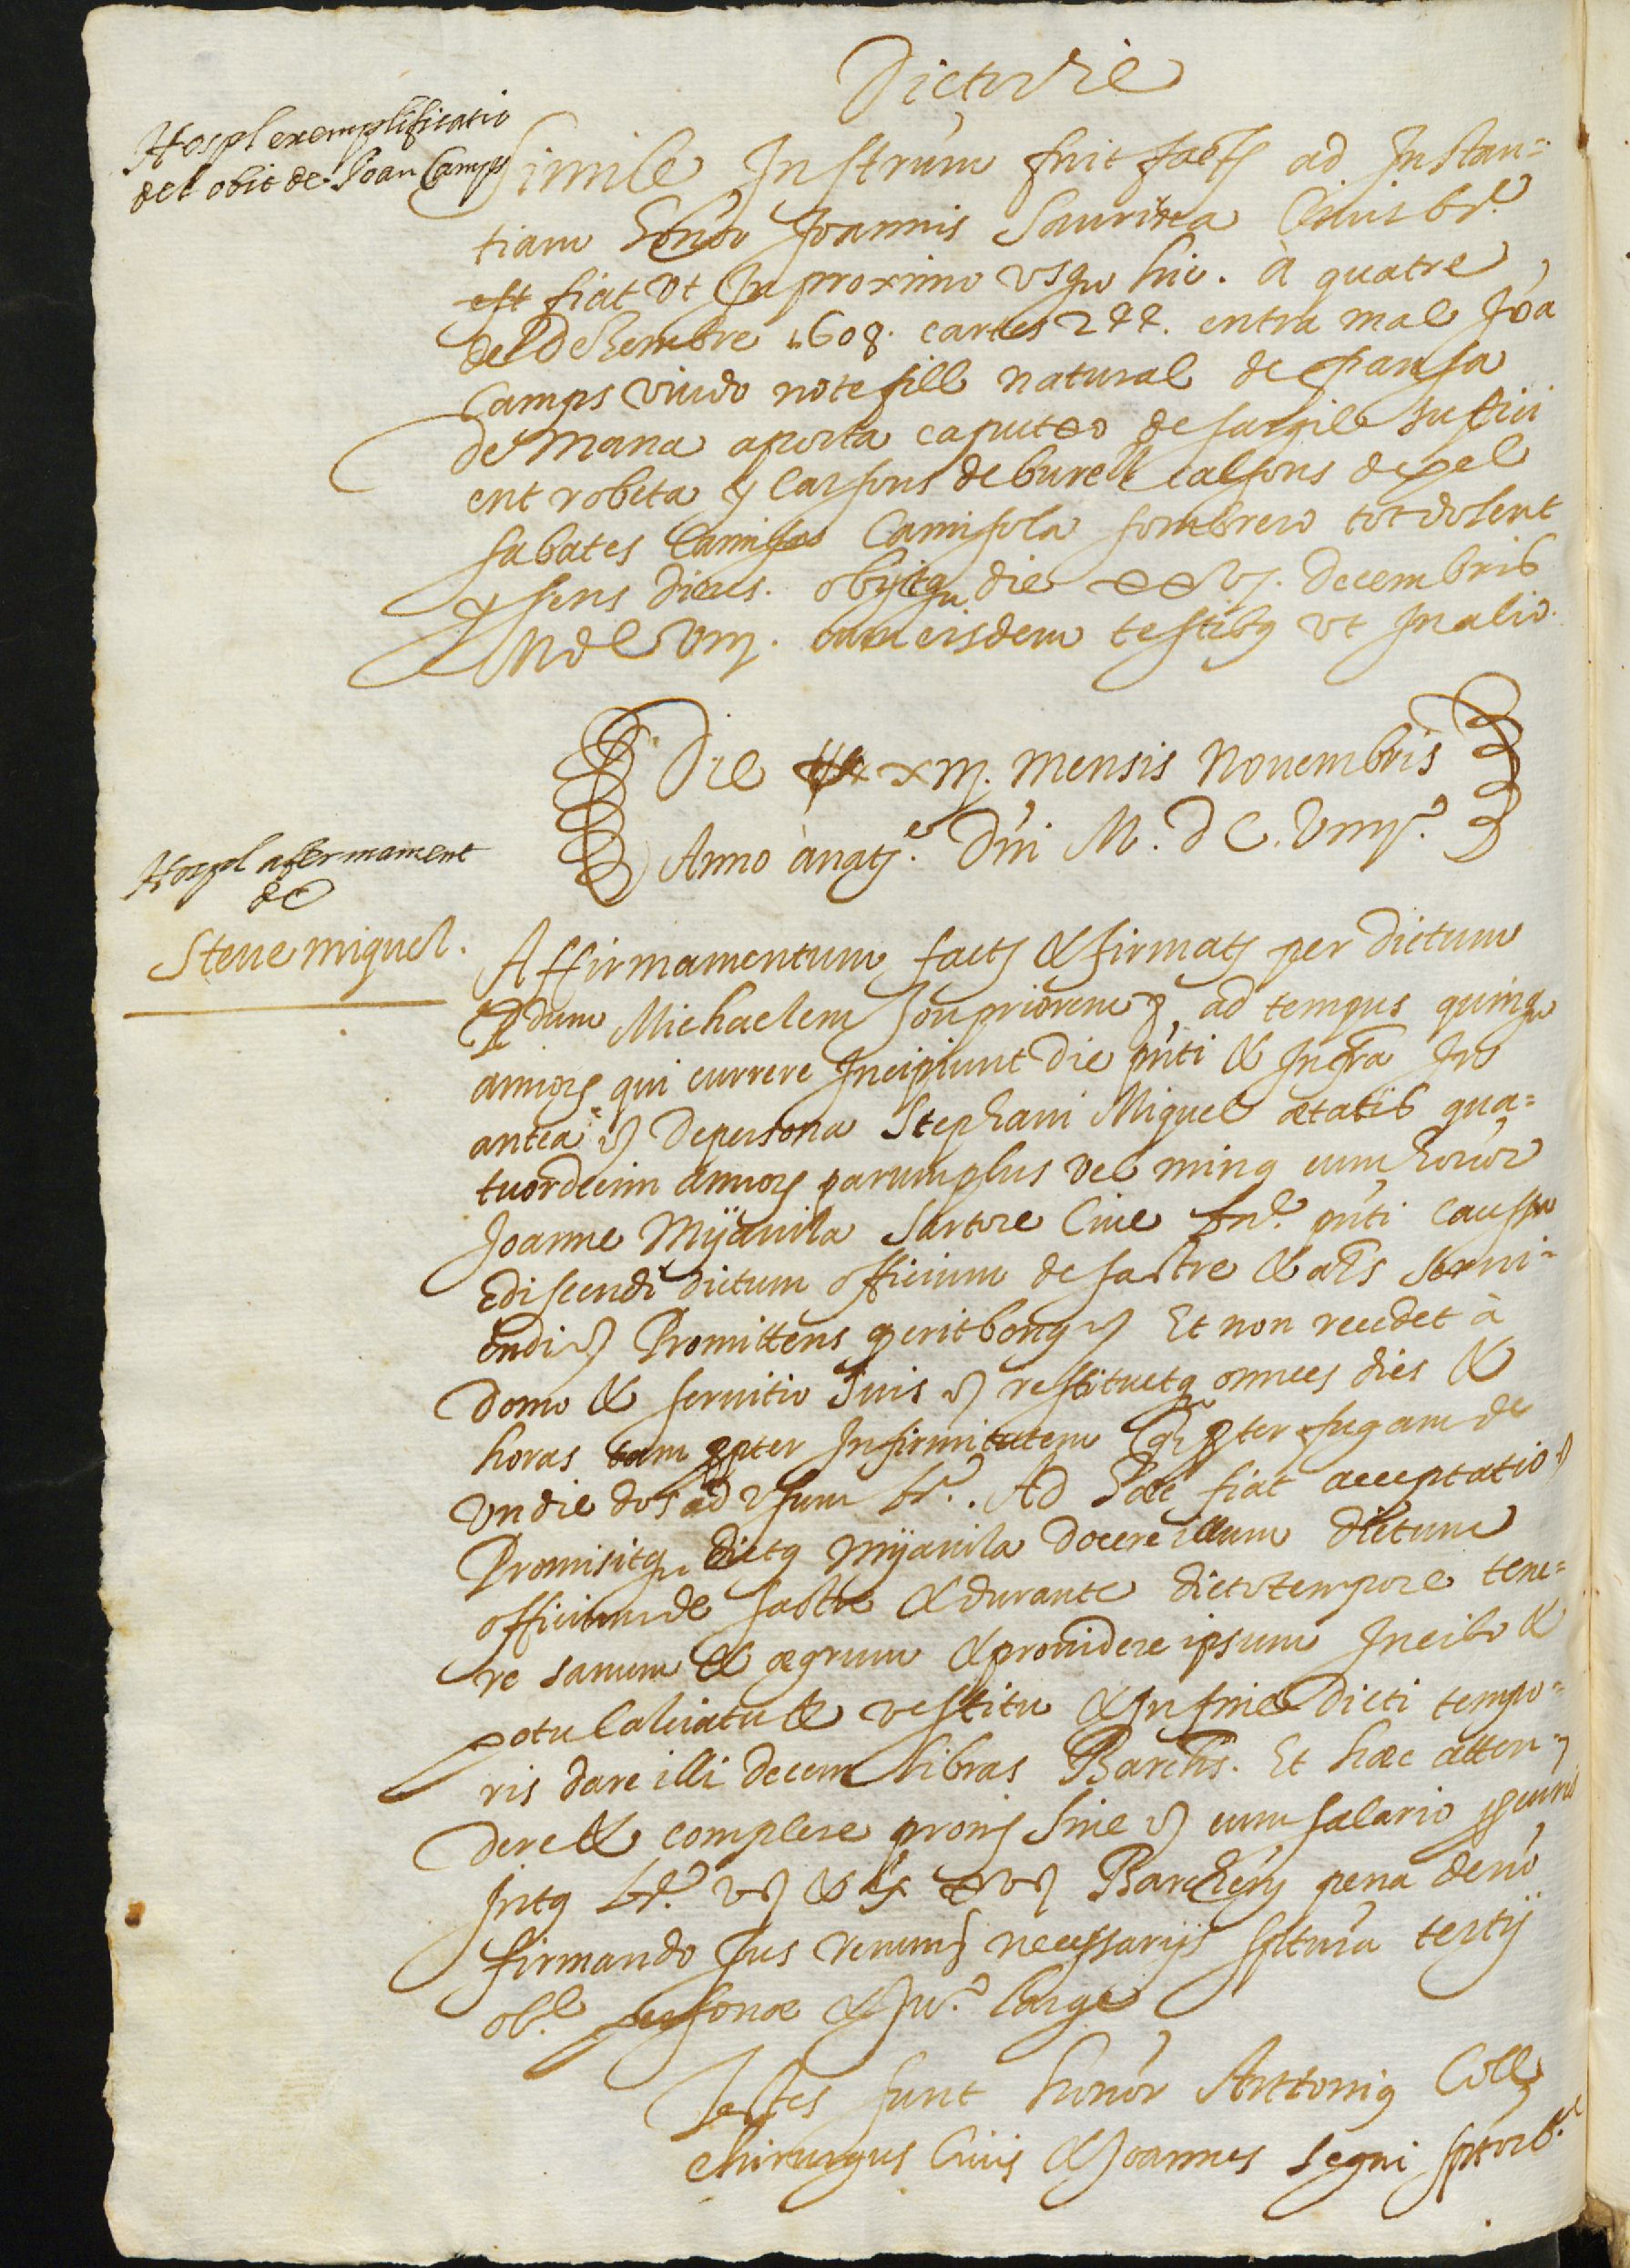 Dicto die
Hospl exemplificatio
del obit de Joan Camps
Simile Instrum fuit fact ad Instan=
tiam honor Joannis Saurina Civis br.
est fiat ut In proximo usqu hic. à quatre
del Dehembre 1608. cartes 277. entra mal Joa
Camps viudo not fill natural de fransa
de Mana aporta caputxo de sargil su
ent robeta y calsons de burell calsons de pel
sabates Camisas Camisola sombrero tot dolent
y sens diners. obijtqu die xxvj. decembris
MdCviiij. cum eisdem testibus ut In alio.
Die xiij. mensis Nouembris
Anno à nat.e Dni M. d C. viiij.o
Hospl afermament
de
Steue miguel.
Affirmamentum fact & firmat per dictum
Rdum Michaelem Jou priorem ad tempus quinqu
annors qui currere Incipiunt die pnti & Infra In
antea De persona Stephani Miguel ætatis qua=
tuordecim annors parum plus vel minus cum honor
Joanne Mijauila Sartore Ciue bne. pnti caussa
Ediscendi dictum officium de sastre & als serui=
endi Promittens q erit bonus Et non recedet à
domo & seruitio suis restituetqu omnes dies &
horas tam propter Infirmitatem qr propter fugam de
un die dos ad usum br. Ad hæc fiat acceptatio
Promisitqu dictus Mijauila docere illum dictum
officium de sastre & durante dicto tempore tene=
re sanum & ægrum & prouidere ipsum In cibo &
potu calciatu & vestitu & In fine dicti tempo=
ris dare illi decem libras Barchs. Et hæc atten=
dere & complere promj sine cum salario procuris
Intus br. v & xv Barchen pena deno
firmando Jus renun necessarijs sptura tertij
obl. personæ & Jur. large
Testes sunt honor Anttonius Coll
chirurgus Ciuis & Joannes Segui sptor b.e